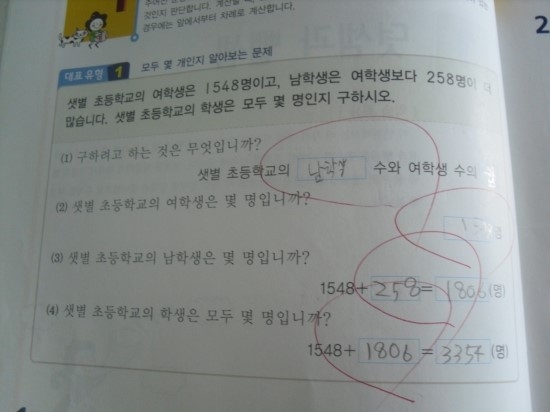 것인지 판단합니다. 계산할
경우에는 앞에서부터 차례로 계산합니다.
2
대표 유형 1 모두 몇 개인지 알아보는 문제
샛별 초등학교의 여학생은 1548명이고, 남학생은 여학생보다 258명이 더
많습니다. 샛별 초등학교의 학생은 모두 몇 명인지 구하시오.
(1) 구하려고 하는 것은 무엇입니까?
샛별 초등학교의 남학생 수와 여학생 수의
(2) 샛별 초등학교의 여학생은 몇 명입니까?
명
(3) 샛별 초등학교의 남학생은 몇 명입니까?
1548+258=1806(명)
(4) 샛별 초등학교의 학생은 모두 몇 명입니까?
1548+1806=3354(명)